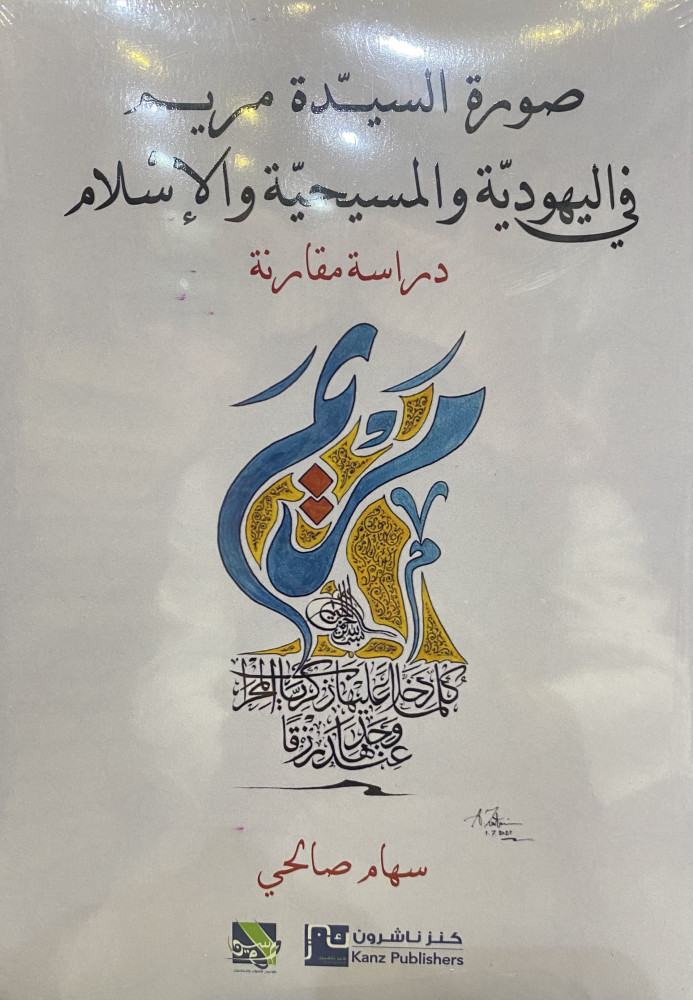 صورة السيّدة مريم
في اليهوديّة والمسيحيّة والإسلام
دراسة مقارنة
مريم
كلما دخل عليها زكريا المحراب
وجد
عندها رزقا
1.7.2021
سهام صالحي
كنز ناشرون
Kanz Publishers